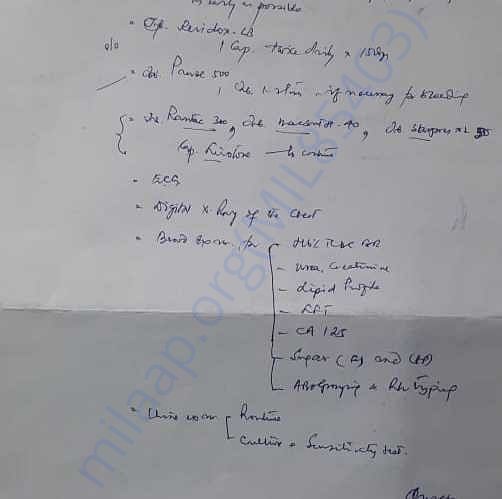 as early as possible
Cap. Revidox-LB
1 Cap. twice daily x 15 days
Tab. Pause 500
1 tab. if necessary for bleeding
Tab. Rantac 300, Tab. 40, Tab. 50
Cap. to continue
ECG
Digital X-Ray of the Chest
Blood exam. for - Hb% TLC DC
- Urea, Creatinine
- Lipid Profile
- LFT
- CA 125
- Sugar (F) and (PP)
- ABO Grouping & Rh Typing
Urine exam - Routine
- Culture & Sensitivity test.
milaap.org(MIL85403)